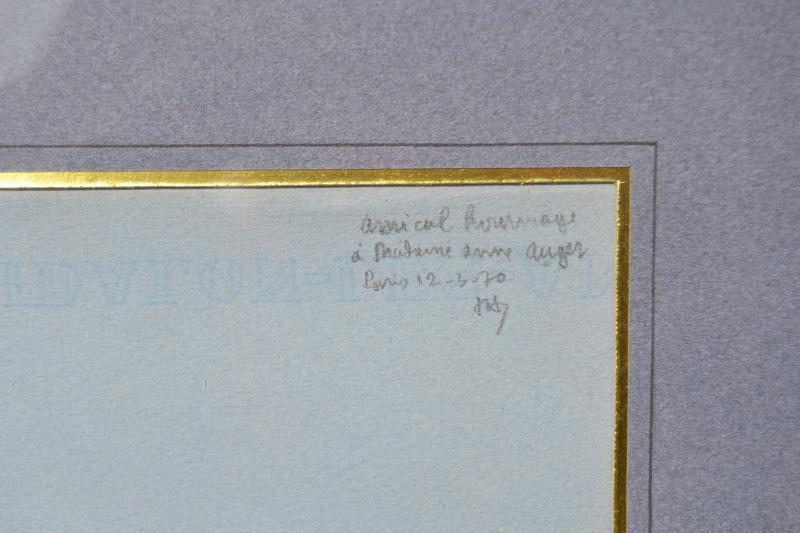 amical hommage
à Madame Anne Auger
Paris 12-3-70